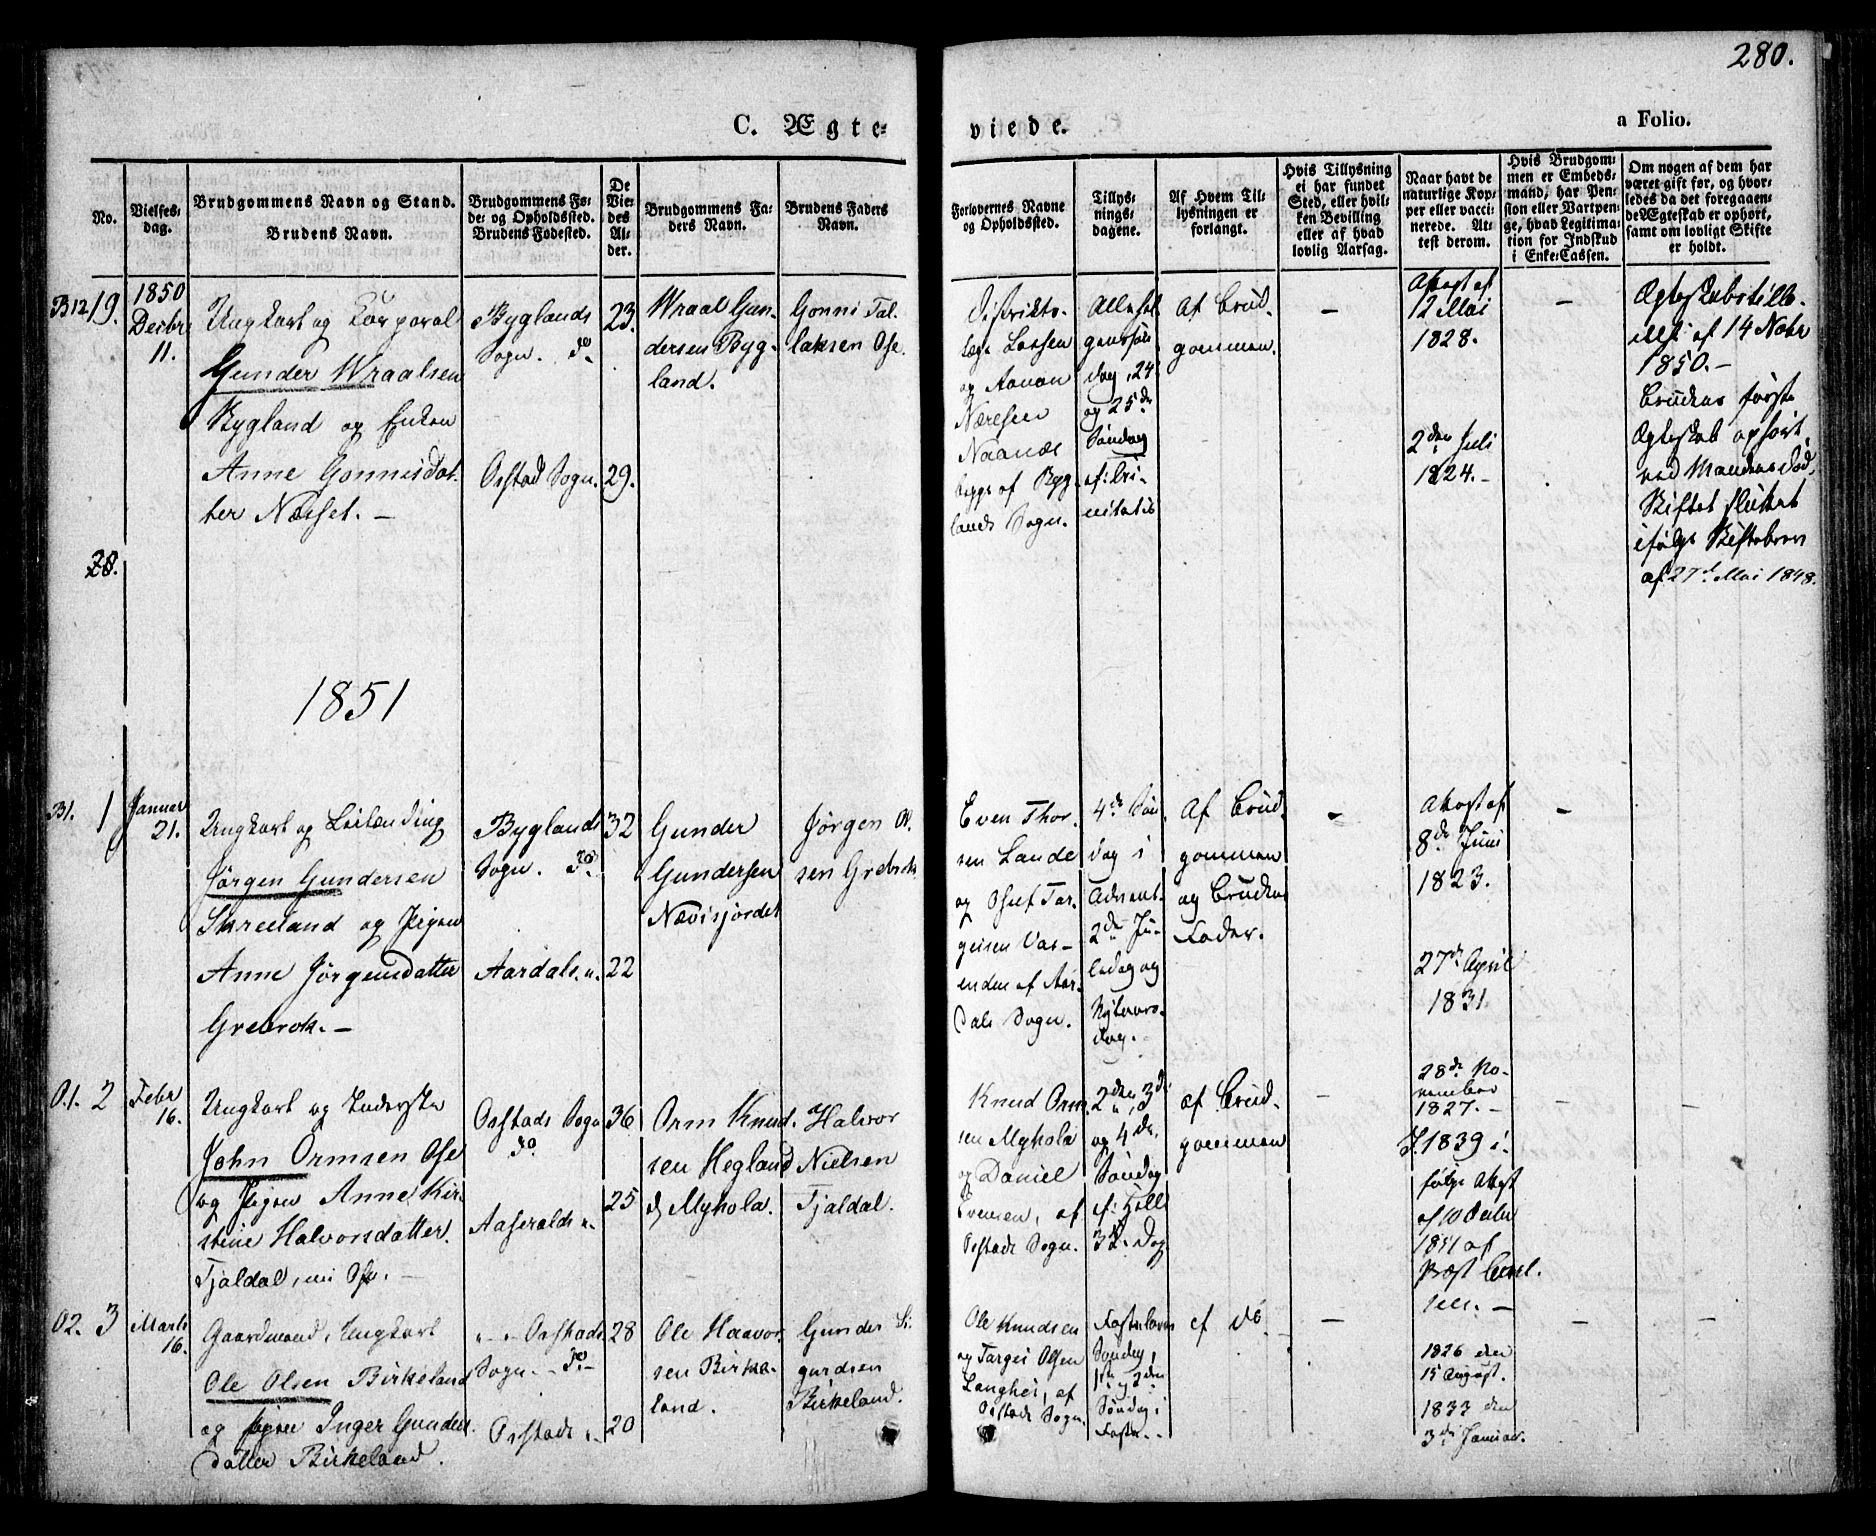 280.
C. Ægte-
viede.
a Folio.
No.
Vielses-
dag.
Brudgommens Navn og Stand.
Brudens Navn.
Brudgommens Fø-
de- og Opholdssted.
Brudens Fødested.
De
Vie-
des
Al-
der.
Brudgommens Fa-
ders Navn.
Brudens Faders
Navn.
Forlovernes Navne
og Opholdssted.
Tillys-
nings-
dagene.
Af Hvem Til-
lysningen er
forlangt.
Hvis Tillysning
ei har fundet
Sted, eller hvil-
ken Bevilling
eller af hvad
lovlig Aarsag.
Naar havt de
naturlige Kop-
per eller vacci-
nerede. At-
test derom.
Hvis Brudgom-
men er Embeds-
mand, har Pen-
sion eller Vartpen-
ge, hvad Legitima-
tion for Indskud
i Enke-Cassen.
Om nogen af dem har
været gift før, og hvor-
ledes da det foregaaen-
de Ægteskab er ophørt,
samt om lovligt Skifte
er holdt.
B12 19.
1850
Decbr
11.
Ungkarl og Corporal
Gunder Wraalsen
Bygland og Enken
Anne Gonnisdat-
ter Næsset. —
Byglands
Sogn. do
Osstad Sogn.
23.
29.
Wraal Gun-
dersen Byg-
land.
Gonni Tal-
laksen Ose.
Distrikts-
læge Lassen
og Aanon
Næresen
Naanæs
begge af Byg-
lands Sogn.
Allehel-
gens
dag, 24
og 25de
Søndag
ef: Tri-
nitatis
Af Brud
gommen.
—
Attest af
12 Mai
1828.
2den Juli
1824. —
—
Ægteskabstilla-
else af 14 Novbr
1850. —
Brudens første
Ægteskab ophørt
ved Mandens Død,
Skiftet sluttet
ifølge Skiftebrev
af 27d Mai 1848.
28.
1851
B1. 1
Januar
21.
Ungkarl og Leilænding
Jørgen Gundersen
Skreeland og Pigen
Anne Jørgensdatter
Grebrok. —
Byglands
Sogn. do
Aardals. "
32
22
Gunder
Gundersen
Nævisjordet
Jørgen Ol
sen Grebrok
Even Thor-
sen Lande
og Osuf Tar-
geisen Var-
enden af Aar-
dals Sogn.
4de Søn
dag i
Advent
2de Ju-
ledag og
Nytaars-
dag. -
Af Brud
gommen
og Brudens
Fader.
—
Attest af
8de Juni
1823.
27de April
1831.
—
O.1. 2
Febr
16.
Ungkarl og Inderste
John Ormsen Ose
og Pigen Anne Kir
stine Halvorsdatter
Tjaldal, nu Ose. —
Osstads Sogn
do
Aaseralds "
36
25
Orm Knud-
sen Hegland
Myhola.
Halvor
Nielsen
Tjaldal.
Knud Orm
sen Myhola
og Daniel
Evensen, af
Osstads Sogn.
2den, 3de
og 4de
Søndag
ef: Hell.
3K. Dag
af Brud-
gommen
—
28de No-
vember
1827. —
I 1839 i-
følge Attest
af 10 Decbr
1841 af
Præst
—
—
O2. 3
Marts
16.
Gaardmand, Ungkarl
Ole Olsen Birkeland
og Pigen Inger Gunders
datter Birkeland.
" - Osstads
Sogn. - do -
Osstads "
28
20
Ole Haavor
sen Birke-
land.
Gunder Si-
gurdsen
Birkeland.
Ole Knudsen
og Targei Olsen
Langhei, af
Osstads Sogn.
Fastelavns
Søndag,
1ste og 2den
Søndag i
Faste. -
af do
—
1826 den
15 August.
1833 den
3de Januar.
—
—